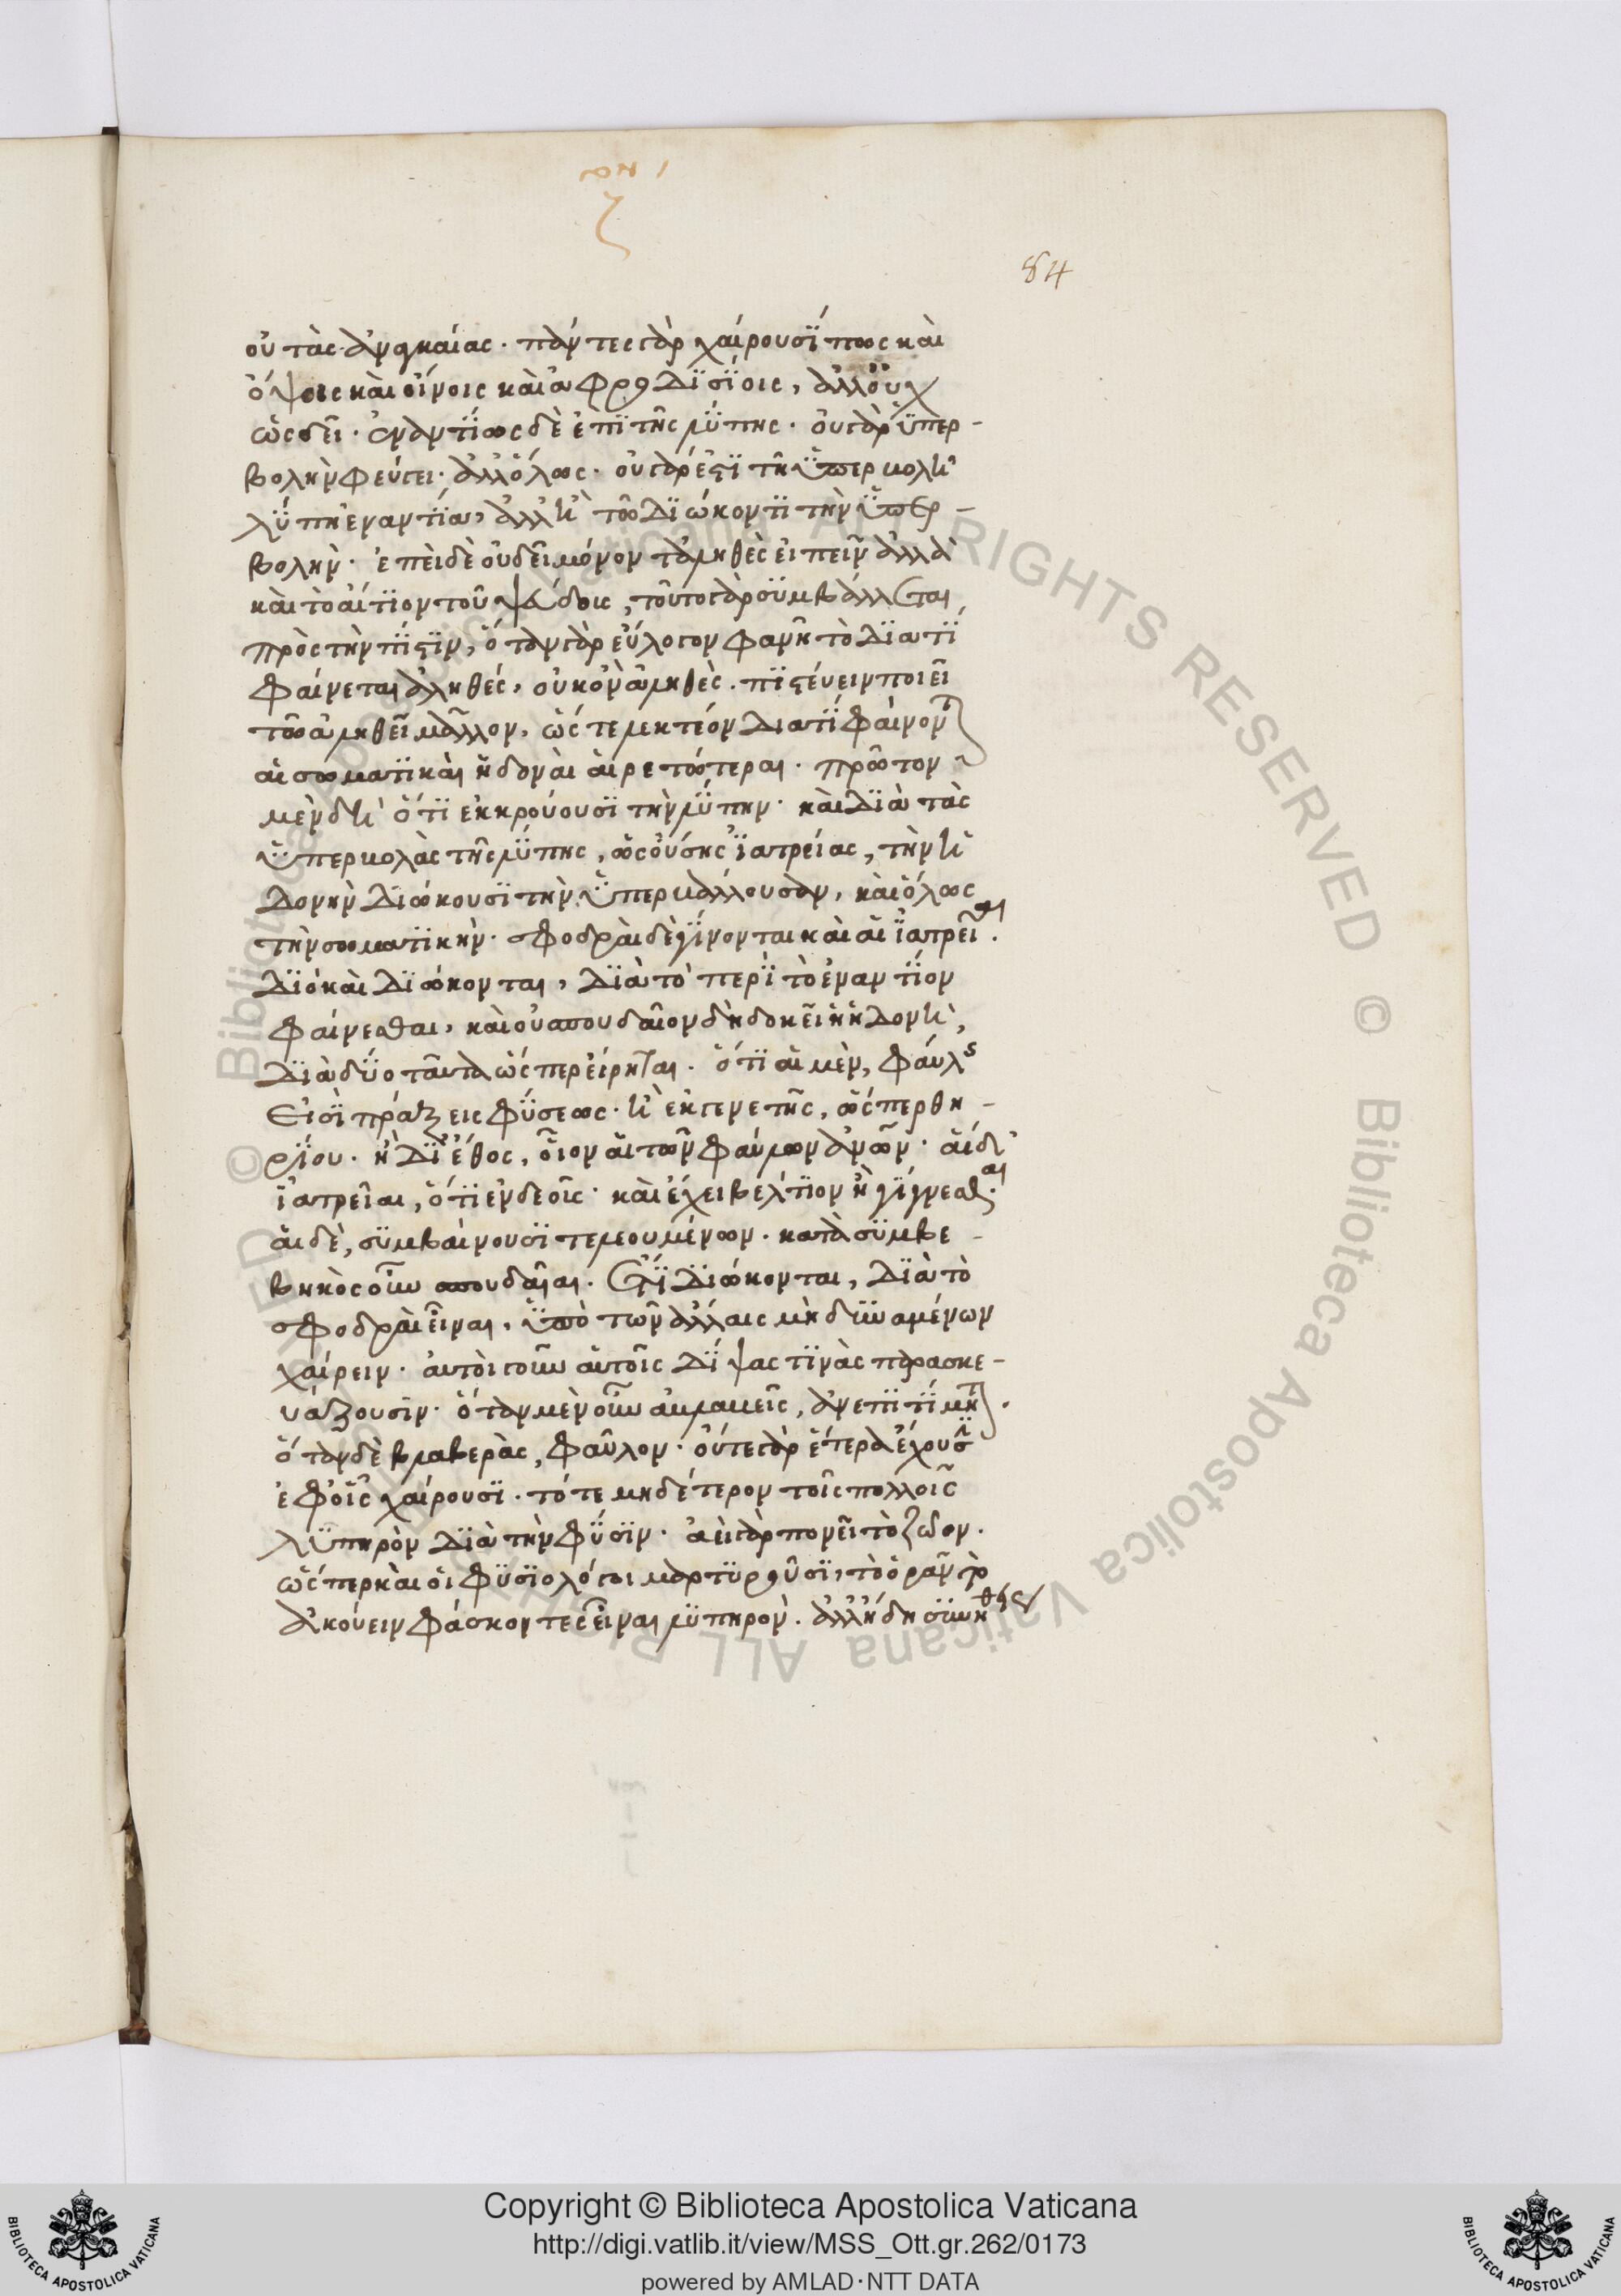 84
οὐ τὰς ἀναγκαίας· πάντες γὰρ χαίρουσί πως καὶ
ὄψοις καὶ οἴνοις καὶ ἀφροδισίοις, ἀλλ' οὐχ
ὡς δεῖ· ἐναντίως δὲ ἐπὶ τῆς λύπης· οὐ γὰρ ὑπερ-
βολὴν φεύγει· ἀλλ' ὅλως· οὐ γάρ ἐστι τῇ ὑπερβολῇ
λύπη ἐναντία, ἀλλ' ἢ τῷ διώκοντι τὴν ὑπερ-
βολήν· ἐπεὶ δὲ οὐ δεῖ μόνον τἀληθὲς εἰπεῖν ἀλλὰ
καὶ τὸ αἴτιον τοῦ ψεύδους, τοῦτο γὰρ συμβάλλεται
πρὸς τὴν πίστιν, ὅταν γὰρ εὔλογον φανῇ τὸ διατί
φαίνεται ἀληθές, οὐκ ὂν ἀληθὲς. πιστεύειν ποιεῖ
τῷ ἀληθεῖ μᾶλλον, ὥστε λεκτέον διατί φαίνονται
αἱ σωματικαὶ ἡδοναὶ αἱρετώτεραι. πρῶτον
μὲν δὴ ὅτι ἐκκρούουσι τὴν λύπην· καὶ διὰ τὰς
ὑπερβολὰς τῆς λύπης, ὡς οὔσης ἰατρείας, τὴν ἡ
δονὴν διώκουσι τὴν ὑπερβάλλουσαν, καὶ ὅλως
τὴν σωματικήν· σφοδραὶ δὲ γίνονται καὶ αἱ ἰατρεῖαι.
διὸ καὶ διώκονται, διὰ τὸ περὶ τὸ ἐναντίον
φαίνεσθαι, καὶ οὐ σπουδαῖον δὴ δοκεῖ ἡ ἡδονὴ,
διὰ δύο ταῦτα ὥσπερ εἴρηται. ὅτι αἱ μὲν, φαύλης
εἰσὶ πράξεις φύσεως· ἢ ἐκ γενετῆς, ὥσπερ θη-
ρίου· ἢ δι' ἔθος, οἷον αἱ τῶν φαύλων ἀνθρώπων· αἱ δ'
ἰατρεῖαι, ὅτι ἐνδεοῖς· καὶ ἔχει βέλτιον ἢ γίγνεσθαι.
αἱ δὲ, συμβαίνουσι τελεουμένων. κατὰ συμβε-
βηκὸς οὖν σπουδαῖαι. ἔτι διώκονται, διὰ τὸ
σφοδραὶ εἶναι, ὑπὸ τῶν ἄλλαις μὴ δυναμένων
χαίρειν· αὐτοὶ γοῦν αὑτοῖς δίψας τινὰς παρασκε-
υάζουσιν· ὅταν μὲν οὖν ἀβλαβεῖς, ἀνεπιτίμητον.
ὅταν δὲ βλαβερὰς, φαῦλον· οὔτε γὰρ ἕτερα ἔχουσιν
ἐφ' οἷς χαίρουσι. τό τε μηδέτερον τοῖς πολλοῖς
λυπηρὸν διὰ τὴν φύσιν· ἀεὶ γὰρ πονεῖ τὸ ζῶον.
ὥσπερ καὶ οἱ φυσιολόγοι μαρτυροῦσι, τὸ ὁρᾶν καὶ
ἀκούειν φάσκοντες εἶναι λυπηρόν. ἀλλ' ἤδη συνήθης
Copyright © Biblioteca Apostolica Vaticana
http://digi.vatlib.it/view/MSS_Ott.gr.262/0173
powered by AMLAD·NTT DATA
BIBLIOTECA APOSTOLICA VATICANA
BIBLIOTECA APOSTOLICA VATICANA